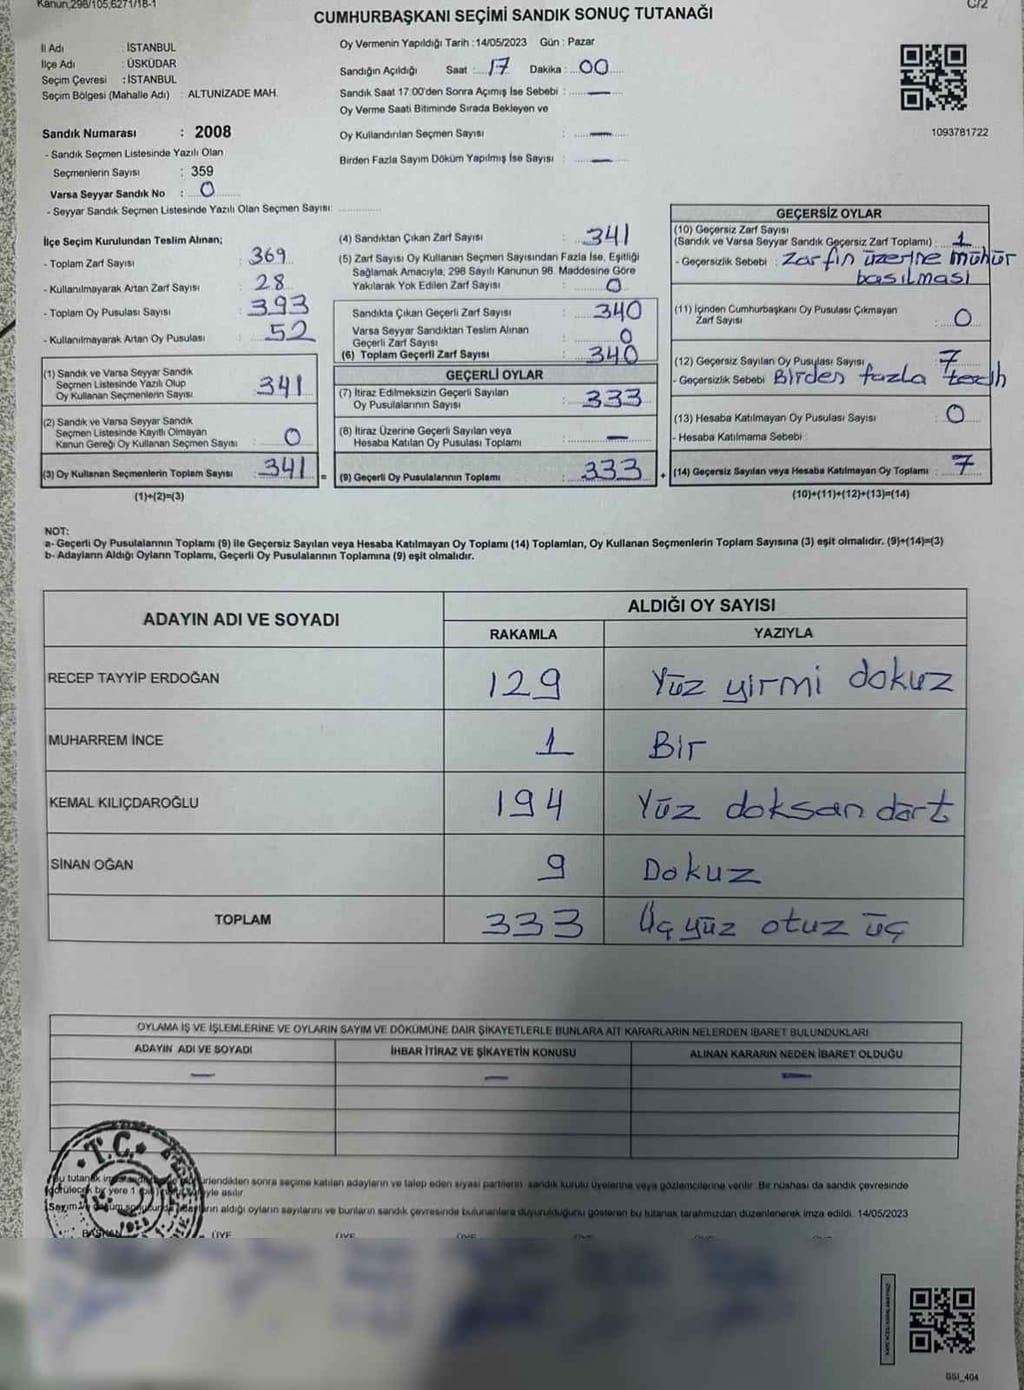 Kanun,298/105,6271/18-1
C/2
CUMHURBAŞKANI SEÇİMİ SANDIK SONUÇ TUTANAĞI
İl Adı : İSTANBUL
İlçe Adı : ÜSKÜDAR
Seçim Çevresi : İSTANBUL
Seçim Bölgesi (Mahalle Adı) : ALTUNİZADE MAH.
Sandık Numarası : 2008
- Sandık Seçmen Listesinde Yazılı Olan
Seçmenlerin Sayısı : 359
Varsa Seyyar Sandık No : 0
- Seyyar Sandık Seçmen Listesinde Yazılı Olan Seçmen Sayısı:
Oy Vermenin Yapıldığı Tarih :14/05/2023 Gün : Pazar
Sandığın Açıldığı Saat : 17 Dakika : 00
Sandık Saat 17:00'den Sonra Açımış İse Sebebi : —
Oy Verme Saati Bitiminde Sırada Bekleyen ve
Oy Kullandırılan Seçmen Sayısı : —
Birden Fazla Sayım Döküm Yapılmış İse Sayısı : —
1093781722
İlçe Seçim Kurulundan Teslim Alınan;
- Toplam Zarf Sayısı : 369
- Kullanılmayarak Artan Zarf Sayısı : 28
- Toplam Oy Pusulası Sayısı : 393
- Kullanılmayarak Artan Oy Pusulası : 52
(1) Sandık ve Varsa Seyyar Sandık
Seçmen Listesinde Yazılı Olup
Oy Kullanan Seçmenlerin Sayısı : 341
(2) Sandık ve Varsa Seyyar Sandık
Seçmen Listesinde Kayıtlı Olmayan
Kanun Gereği Oy Kullanan Seçmen Sayısı : 0
(3) Oy Kullanan Seçmenlerin Toplam Sayısı : 341 =
(1)+(2)=(3)
(4) Sandıktan Çıkan Zarf Sayısı : 341
(5) Zarf Sayısı Oy Kullanan Seçmen Sayısından Fazla İse, Eşitliği
Sağlamak Amacıyla, 298 Sayılı Kanunun 98. Maddesine Göre
Yakılarak Yok Edilen Zarf Sayısı : 0
Sandıkta Çıkan Geçerli Zarf Sayısı : 340
Varsa Seyyar Sandıktan Teslim Alınan
Geçerli Zarf Sayısı : 0
(6) Toplam Geçerli Zarf Sayısı : 340
GEÇERLİ OYLAR
(7) İtiraz Edilmeksizin Geçerli Sayılan
Oy Pusulalarının Sayısı : 333
(8) İtiraz Üzerine Geçerli Sayılan veya
Hesaba Katılan Oy Pusulası Toplamı : —
(9) Geçerli Oy Pusulalarının Toplamı : 333 +
GEÇERSİZ OYLAR
(10) Geçersiz Zarf Sayısı
(Sandık ve Varsa Seyyar Sandık Geçersiz Zarf Toplamı) : 1
- Geçersizlik Sebebi : Zarfın üzerine mühür
basılması
(11) İçinden Cumhurbaşkanı Oy Pusulası Çıkmayan
Zarf Sayısı : 0
(12) Geçersiz Sayılan Oy Pusulası Sayısı : 7
- Geçersizlik Sebebi Birden fazla tercih
(13) Hesaba Katılmayan Oy Pusulası Sayısı : 0
- Hesaba Katılmama Sebebi :
(14) Geçersiz Sayılan veya Hesaba Katılmayan Oy Toplamı : 7
(10)+(11)+(12)+(13)=(14)
NOT:
a- Geçerli Oy Pusulalarının Toplamı (9) ile Geçersiz Sayılan veya Hesaba Katılmayan Oy Toplamı (14) Toplamları, Oy Kullanan Seçmenlerin Toplam Sayısına (3) eşit olmalıdır. (9)+(14)=(3)
b- Adayların Aldığı Oyların Toplamı, Geçerli Oy Pusulalarının Toplamına (9) eşit olmalıdır.
ADAYIN ADI VE SOYADI
ALDIĞI OY SAYISI
RAKAMLA YAZIYLA
RECEP TAYYİP ERDOĞAN 129 Yüz yirmi dokuz
MUHARREM İNCE 1 Bir
KEMAL KILIÇDAROĞLU 194 Yüz doksan dört
SİNAN OĞAN 9 Dokuz
TOPLAM 333 Üç yüz otuz üç
OYLAMA İŞ VE İŞLEMLERİNE VE OYLARIN SAYIM VE DÖKÜMÜNE DAİR ŞİKAYETLERLE BUNLARA AİT KARARLARIN NELERDEN İBARET BULUNDUKLARI
ADAYIN ADI VE SOYADI İHBAR İTİRAZ VE ŞİKAYETİN KONUSU ALINAN KARARIN NEDEN İBARET OLDUĞU
— — —
T.C.
Bu tutanak sonra seçime katılan adayların ve talep eden siyasi partilerin sandık kurulu üyelerine veya gözlemcilerine verilir. Bir nüshası da sandık çevresinde
görülecek bir yere asılır
Sayım aldığı oyların sayılarını ve bunların sandık çevresinde bulunanlara duyurulduğunu gösteren bu tutanak tarafımızdan düzenlenerek imza edildi. 14/05/2023
BAŞKAN ÜYE ÜYE ÜYE
SSI_404